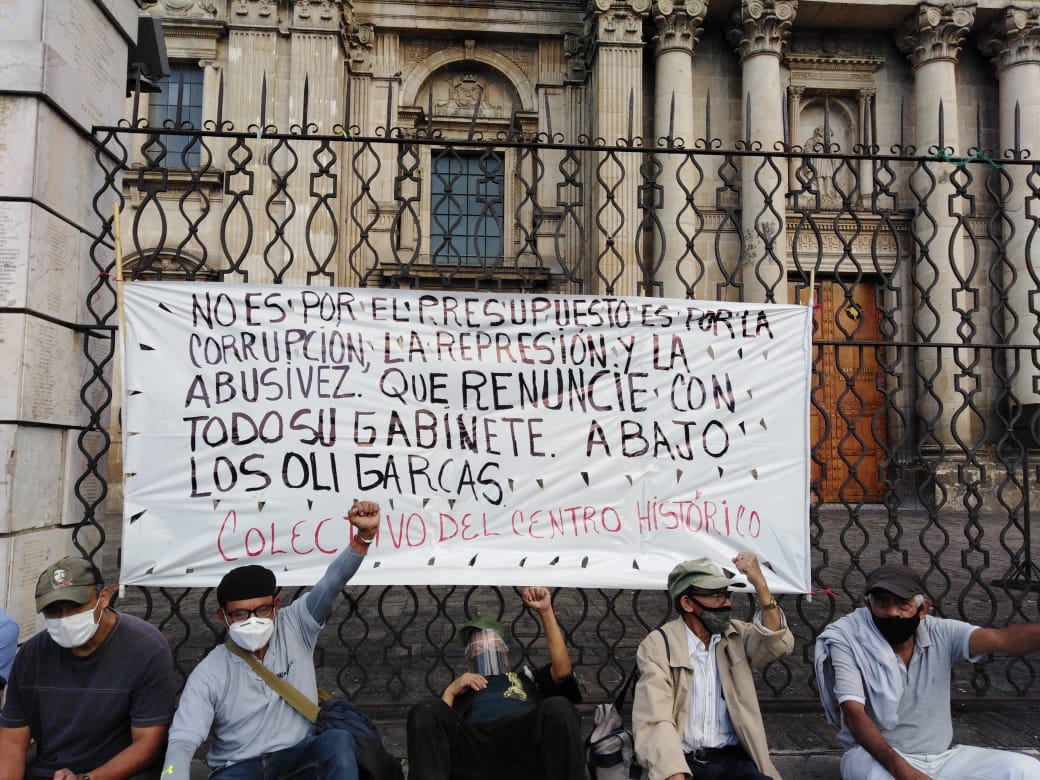 NO ES POR EL PRESUPUESTO ES POR LA
CORRUPCIÓN, LA REPRESIÓN Y LA
ABUSIVEZ. QUE RENUNCIE CON
TODO SU GABINETE. ABAJO
LOS OLIGARCAS.
COLECTIVO DEL CENTRO HISTÓRICO